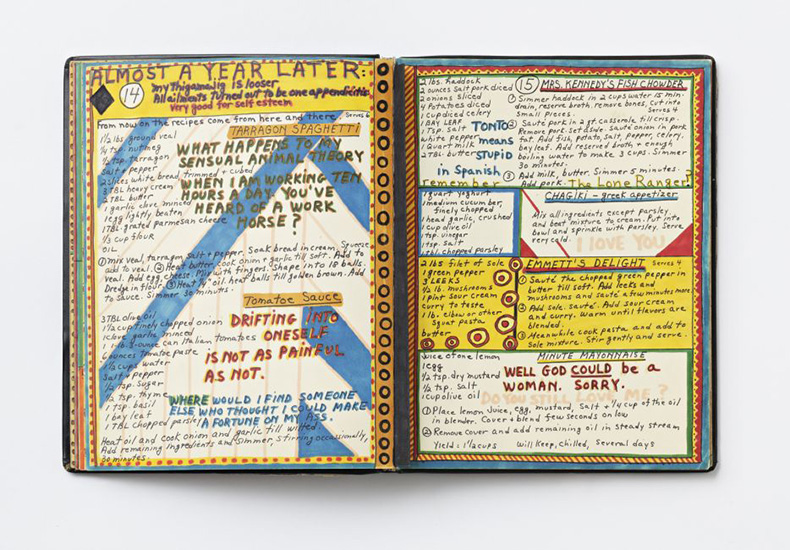 ALMOST A YEAR LATER:
14
my thigamajig is looser
All ailments turned out to be one appendicitis
very good for self esteem
From now on the recipes come from here and there
Serves 6
TARRAGON SPAGHETTI
1 1/2 lbs ground veal
1/4 tsp nutmeg
1/2 tsp. tarragon
Salt + pepper
2 slices white bread, trimmed + cubed
3 TBL heavy cream
1 TBL butter
1 garlic clove minced
1 egg lightly beaten
1 TBL grated parmesan cheese
1/3 cup flour
OIL
WHAT HAPPENS TO MY
SENSUAL ANIMAL THEORY
WHEN I AM WORKING TEN
HOURS A DAY. YOU'VE
HEARD OF A WORK
HORSE?
① Mix veal, tarragon salt + pepper. Soak bread in cream. Squeeze
add to veal. ② Heat butter, cook onion + garlic till soft. Add to
veal. Add egg, cheese. Mix with fingers. Shape into 18 balls.
Dredge in flour. ③ Heat 1/4" oil, heat balls till golden brown. Add
to sauce. Simmer 30 minutes.
Tomatoe Sauce
3 TBL olive oil
1 1/2 cup finely chopped onion
1 clove garlic minced
1 lb. 1-ounce can Italian tomatoes
6 ounces tomatoe paste
1 1/2 cups water
Salt + pepper
1/2 tsp. sugar
1/2 tsp. thyme
1 Tsp. basil
1 bay leaf
1 TBL chopped parsley
DRIFTING INTO
ONESELF
IS NOT AS PAINFUL
AS NOT.
WHERE WOULD I FIND SOMEONE
ELSE WHO THOUGHT I COULD MAKE
A FORTUNE ON MY ASS.
Heat oil and cook onion and garlic till wilted.
Add remaining ingredients and simmer stirring occasionally,
30 minutes.
15
MRS. KENNEDY'S FISH CHOWDER
Serves 4
2 lbs. haddock
2 ounces salt pork diced
2 onions sliced
4 Potatoes diced
1 cup diced celery
1 BAY LEAF
1 Tsp. salt
white pepper
1 Quart milk
2 TBL. butter
TONTO
means
STUPID
in Spanish
remember the Lone Ranger?
① Simmer haddock in 2 cups water 15 min-
drain, reserve broth, remove bones, cut into
small pieces.
② Sauté pork in 2 qt. casserole, till crisp.
Remove pork. Set aside. Sauté onion in pork
fat. Add fish, potato, salt, pepper, celery,
bay leaf. Add reserved broth + enough
boiling water to make 3 cups. Simmer
30 minutes.
③ Add milk, butter. Simmer 5 minutes.
Add pork.
CHAGIKI - greek appetizer
1 quart yoghurt
1 medium cucumber,
finely chopped
1 head garlic, crushed
1 cup olive oil
1 tsp. vinegar
1 tsp. salt
1 TBL. chopped parsley
Mix all ingredients except parsley
and beat mixture to cream. Put into
bowl and sprinkle with parsley. Serve
very cold.
I LOVE YOU
EMMETT'S DELIGHT
Serves 4
2 lbs filet of Sole
1 green pepper
3 LEEKS
1/2 lb. mushrooms
1 pint sour cream
curry to taste
1 lb. elbow or other
squat pasta
butter
① Sauté the chopped green pepper in
butter till soft. Add leeks and
mushrooms and sauté a few minutes more.
② Add sole, sauté. Add sour cream
and curry. Warm until flavors are
blended.
③ Meanwhile cook pasta and add to
Sole mixture. Stir gently and serve.
MINUTE MAYONNAISE
juice of one lemon
1 egg
1/2 tsp. dry mustard
1/2 tsp. salt
1 cup olive oil
WELL GOD COULD be a
WOMAN. SORRY.
DO YOU STILL LOVE ME?
① Place lemon juice, egg, mustard, salt + 1/4 cup of the oil
in blender. Cover + blend few seconds on low
② Remove cover and add remaining oil in steady stream
Yield: 1 1/2 cups
Will keep, chilled, several days